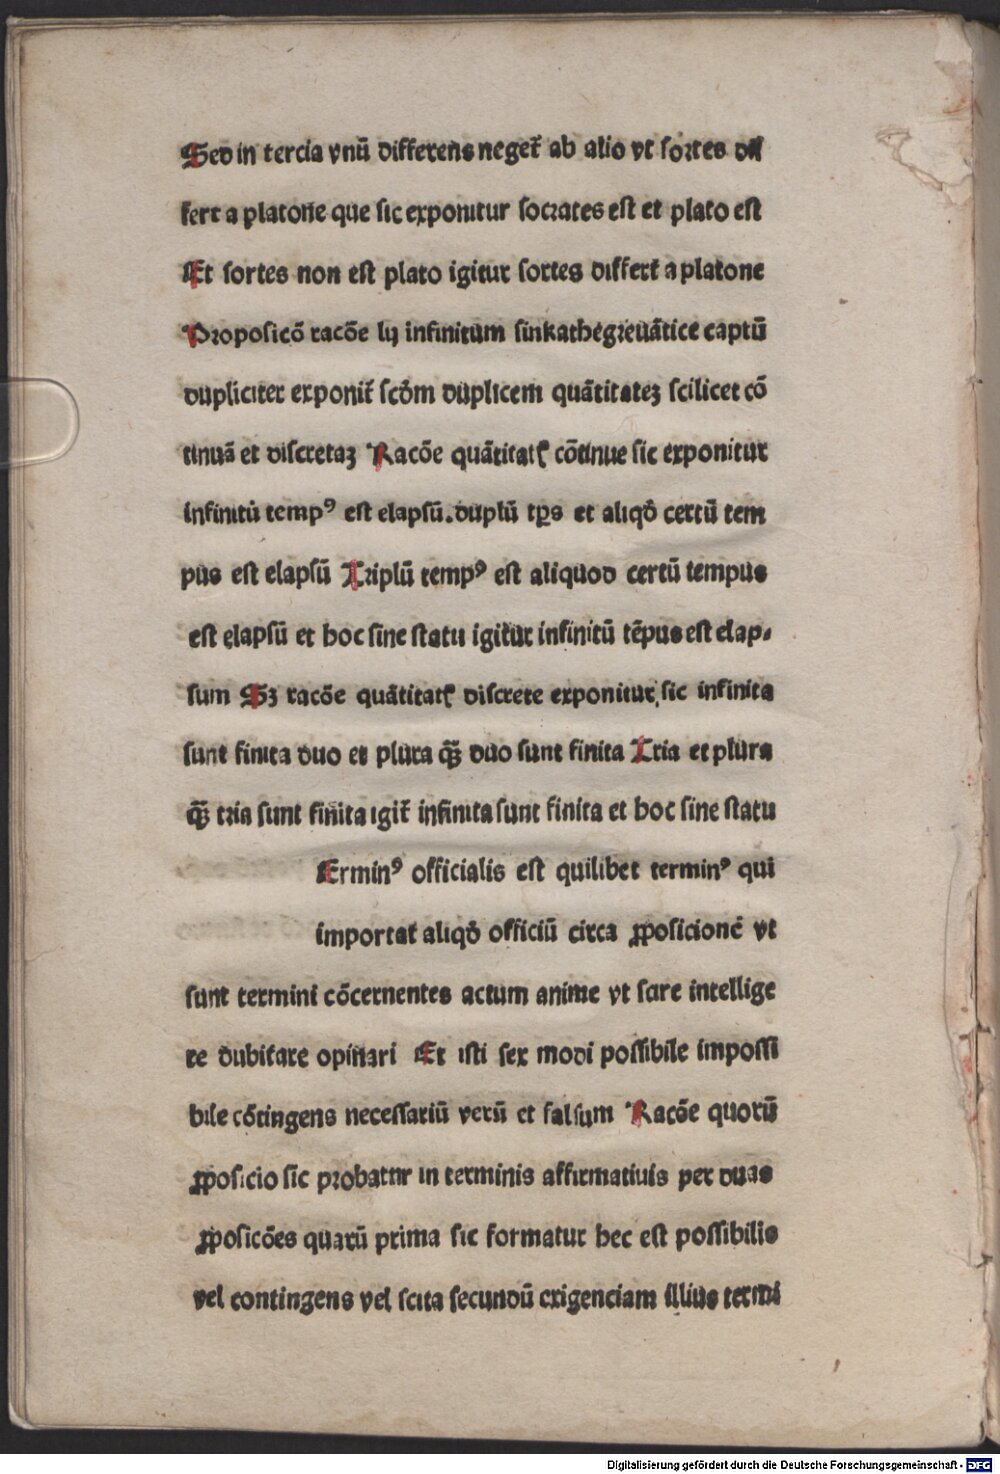 Sed in tercia vnū differens neget᷑ ab alio vt sortes dif
fert a platone que sic exponitur socrates est et plato est
Et sortes non est plato igitur sortes differt a platone
Proposicō racōe ly infinitum sinkathegreuātice captū
dupliciter exponit᷑ scd̄m duplicem quātitateꝫ scilicet cō
tinuā et discretaꝫ Racōe quātitatꝭ cōtinue sic exponitur
infinitū tempꝰ est elapsū.duplū tꝑs et aliqd̄ certū tem
pus est elapsū Triplū tempꝰ est aliquod certū tempus
est elapsū et hoc sine statu igitur infinitū tēpus est elap⸗
sum Sꝫ racōe quātitatꝭ discrete exponitur sic infinita
sunt finita duo et plura qꝫ̄ duo sunt finita Tria et plura
qꝫ̄ tria sunt finita igit᷑ infinita sunt finita et hoc sine statu
Erminꝰ officialis est quilibet terminꝰ qui
importat aliqd̄ officiū circa ꝓposicionē vt
sunt termini cōcernentes actum anime vt scire intellige
re dubitare opinari Et isti sex modi possibile impossi
bile cōtingens necessariū verū et falsum Racōe quorū
ꝓposicio sic probatur in terminis affirmatiuis per duas
ꝓposicōes quarū prima sic formatur hec est possibilis
vel contingens vel scita secundū exigenciam illius termi
Digitalisierung gefördert durch die Deutsche Forschungsgemeinschaft - DFG